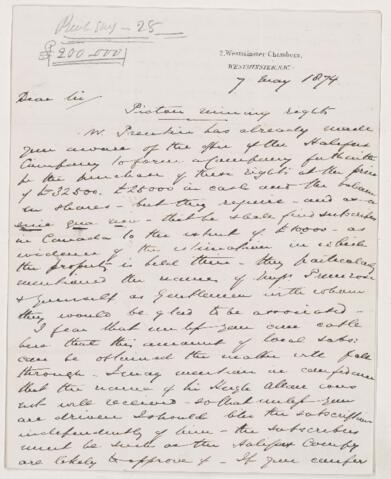 28
200.000
2, Westminster Chambers,
WESTMINSTER. S.W.
7 May 1874
Dear Sir
Pictou mining rights
has already made
you aware of the offer of the Halifax
Company to form a Company forthwith
for the purchase of these rights at the price
of £32500. £25000 in cash and the balance
in shares - but they require - and as a
sine qua non - that he shall find subscribers
in Canada to the extent of £10000 - as
evidence of the estimation in which
the property is held there - they particularly
mentioned the names of
& yourself as Gentlemen with whom
they would be glad to be associated -
I fear that unless you can cable
here that this amount of local subs:
can be obtained the matter will fall
through - I may mention in confidence
that the name of Sir Hugh Allan was
not well received - so that unless you
are driven I should like the subscription
independently of him - the subscribers
must be such as the Halifax Compy
are likely to approve of - If you confer